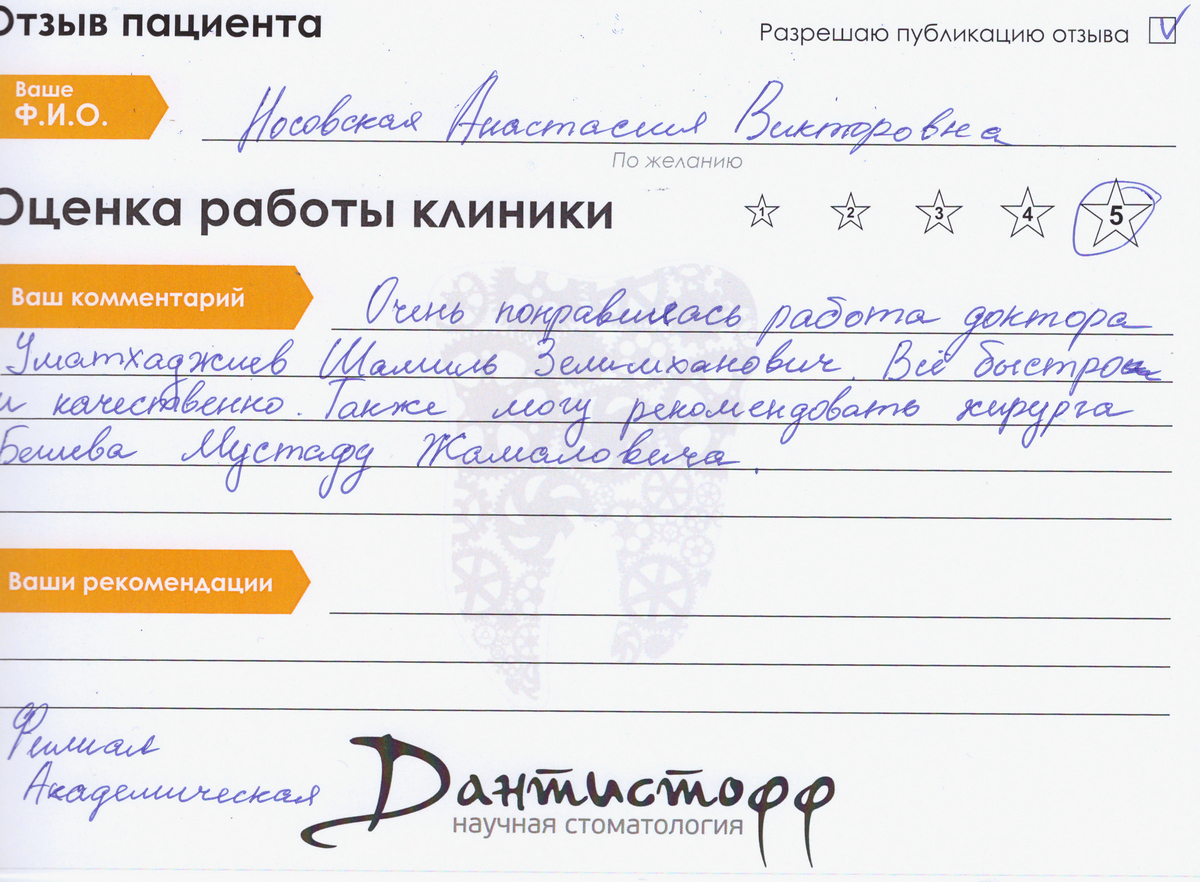 Отзыв пациента
Разрешаю публикацию отзыва
Ваше
Ф.И.О.
Носовская Анастасия Викторовна
По желанию
Оценка работы клиники
1 2 3 4 5
Ваш комментарий
Очень понравилась работа доктора
Уматхаджиев Шамиль Зелимханович. Всё быстро
и качественно. Также могу рекомендовать хирурга
Мустафу Жамаловича.
Ваши рекомендации
Филиал
Академическая
Дантистофф
научная стоматология